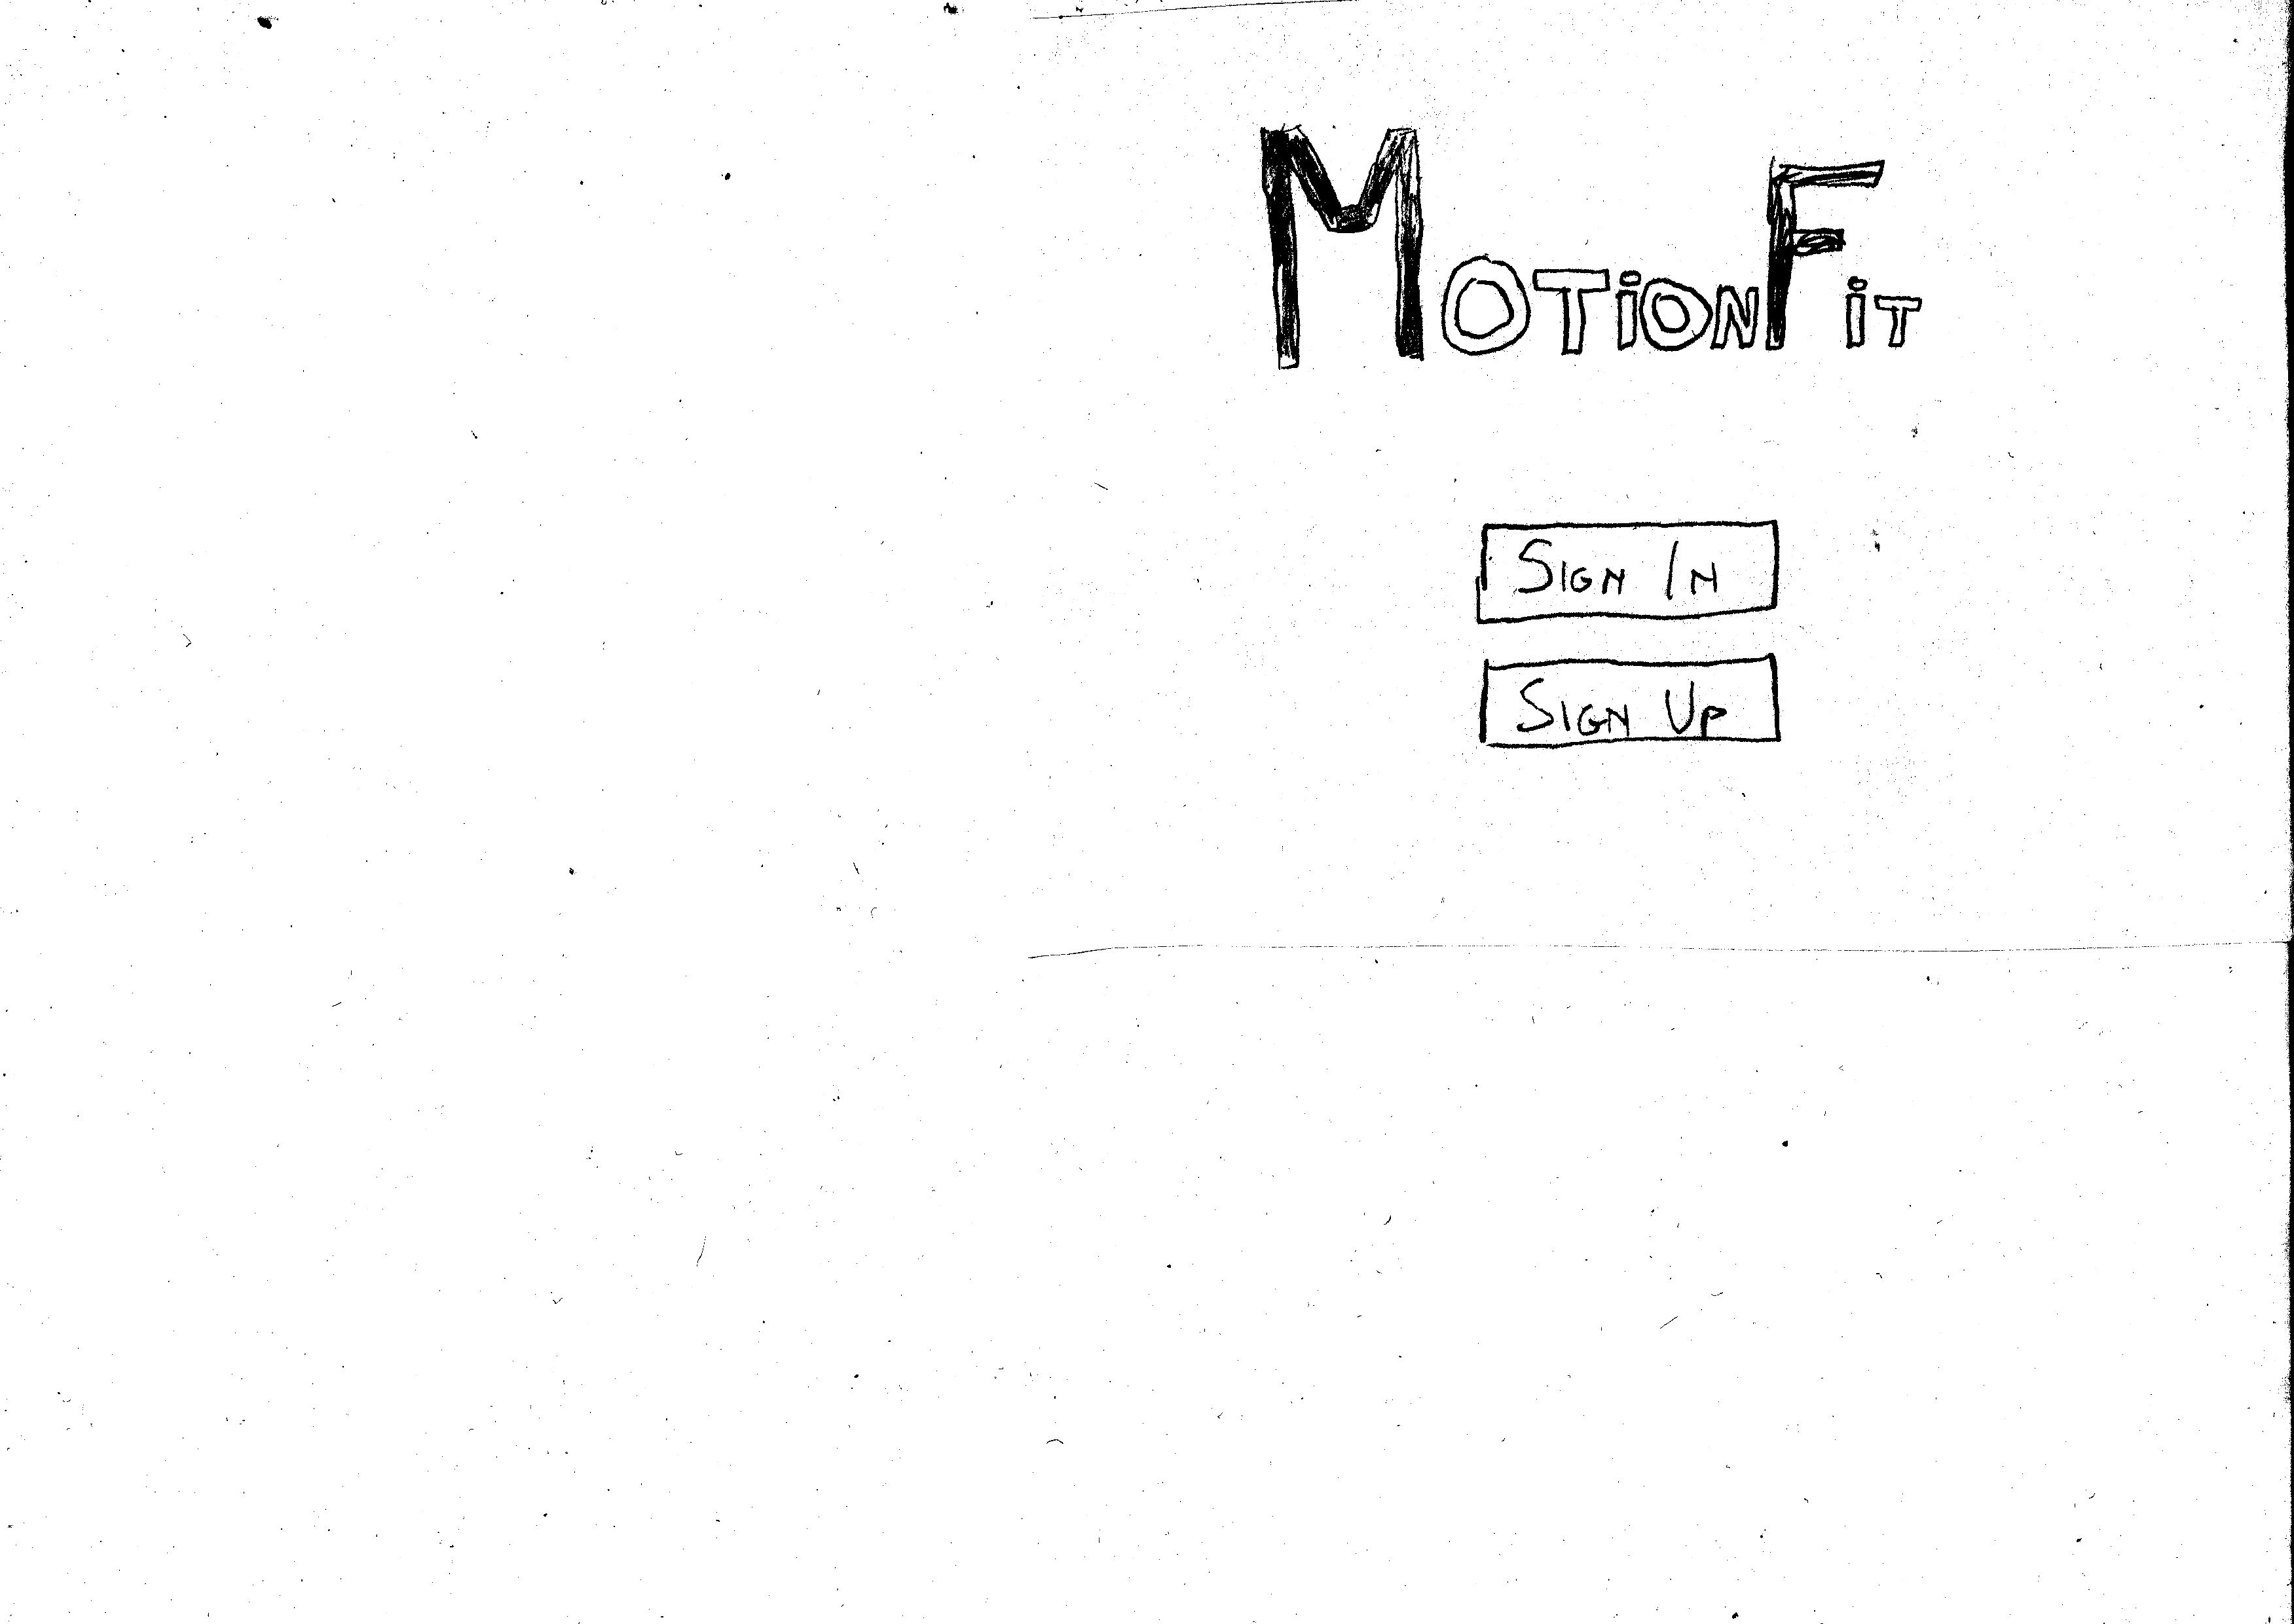 MOTiONFiT
SIGN IN
SIGN UP